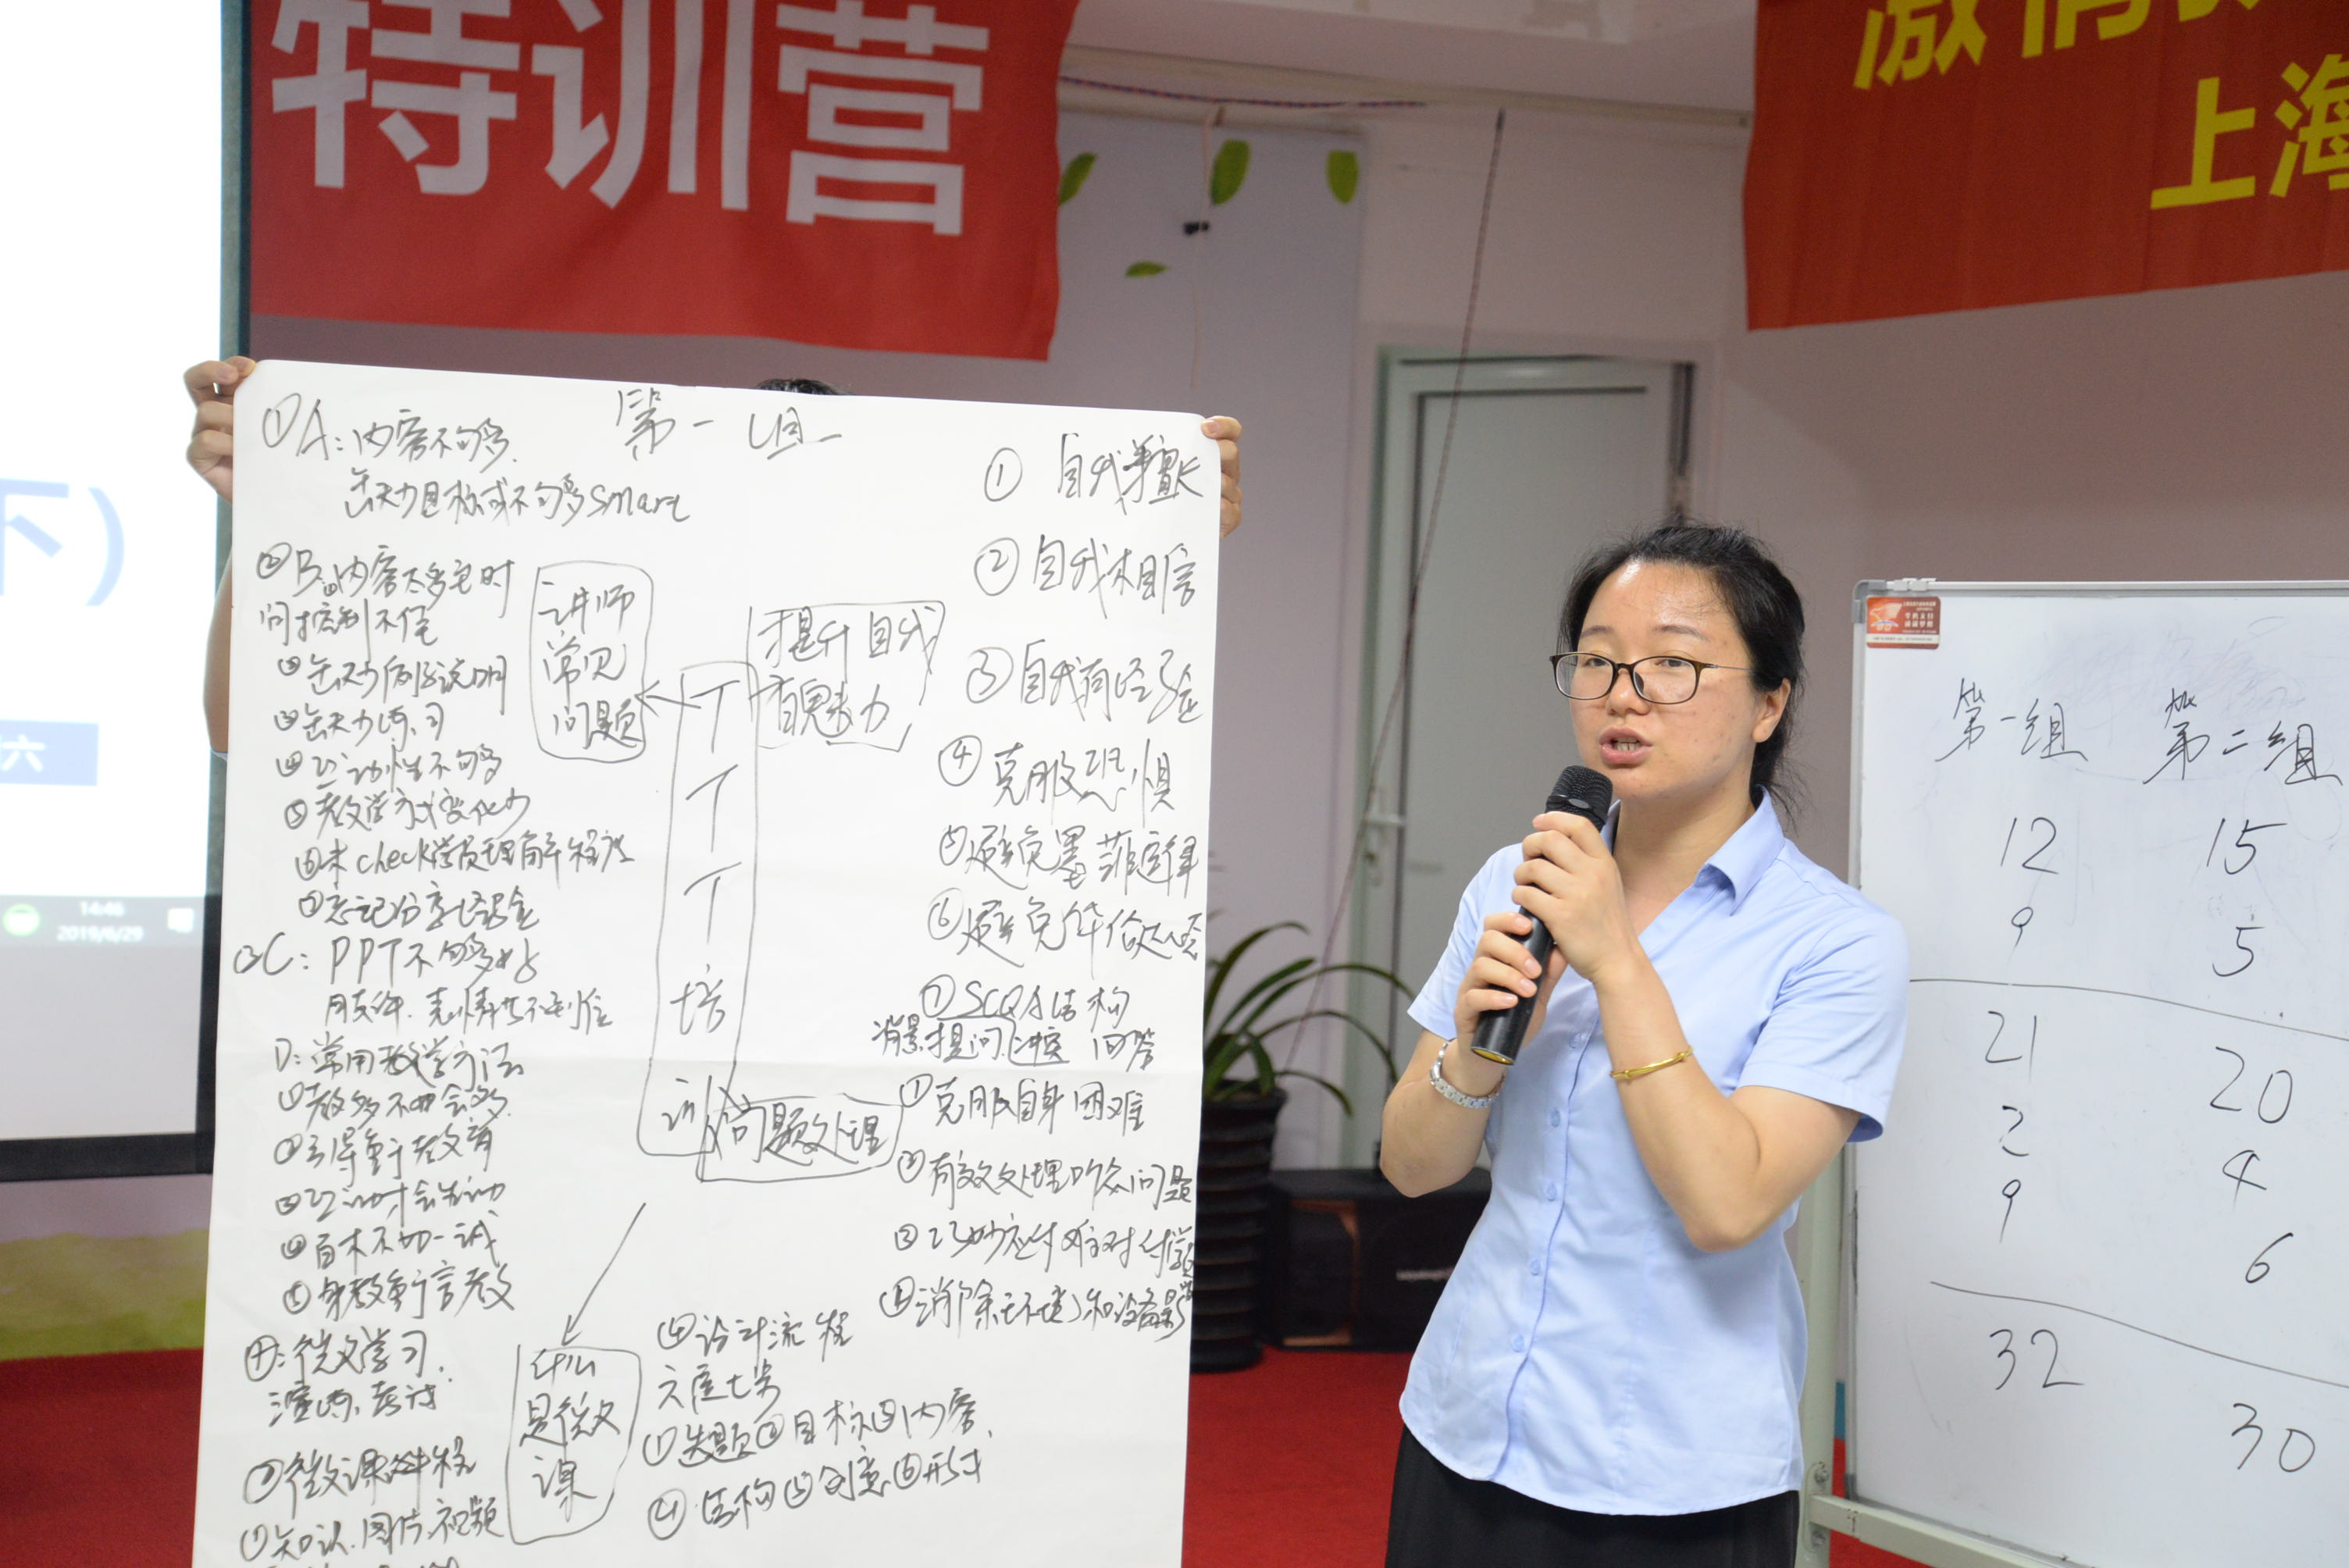 特训营
激情
上海
下)
六
14:46
2019/6/29
第一组
①A:内容不够多
缺少目标或不够多smart
②B:内容太多宅时
间控制不住
③缺少案例说明
④缺少练习
⑤互动性不够多
⑤教学方式变化少
⑥未check学员理解程度
⑦忘记分享经验
③C:PPT不够多好
肢体.表情不到位
D:常用教学方法
①教多不如会多
②引导重于教育
③互动才会生动
④百术不如一试
⑤身教重于言教
微学习
演练.考试
②微课
①知识.图片.视频
讲师
常见
问题
提升自我
有魅力
T
T
T
培
训
问题处理
什么
是微
课
① 自我擅长
② 自我相信
③ 自我有经验
④ 克服恐惧
⑤避免墨菲定律
⑥避免华伦达
⑦SCQA结构
背景.提问.冲突 回答
①克服自身困难
②有效处理听众问题
③巧妙应付难对付学
④消除环境和设备影
④设计流程
六度七步
①选题②目标③内容、
④结构⑤创意⑥形式
第一组 第二组
12 15
9 5
21 20
2 4
9 6
32 30